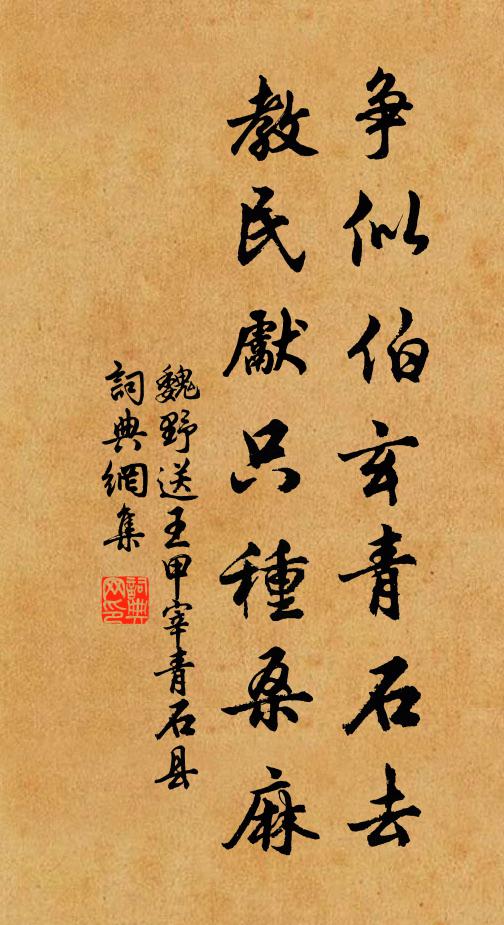 争似伯玄青石去
教民獻只種桑麻
魏野送王甲宰青石县
詞典網集
詞典網印